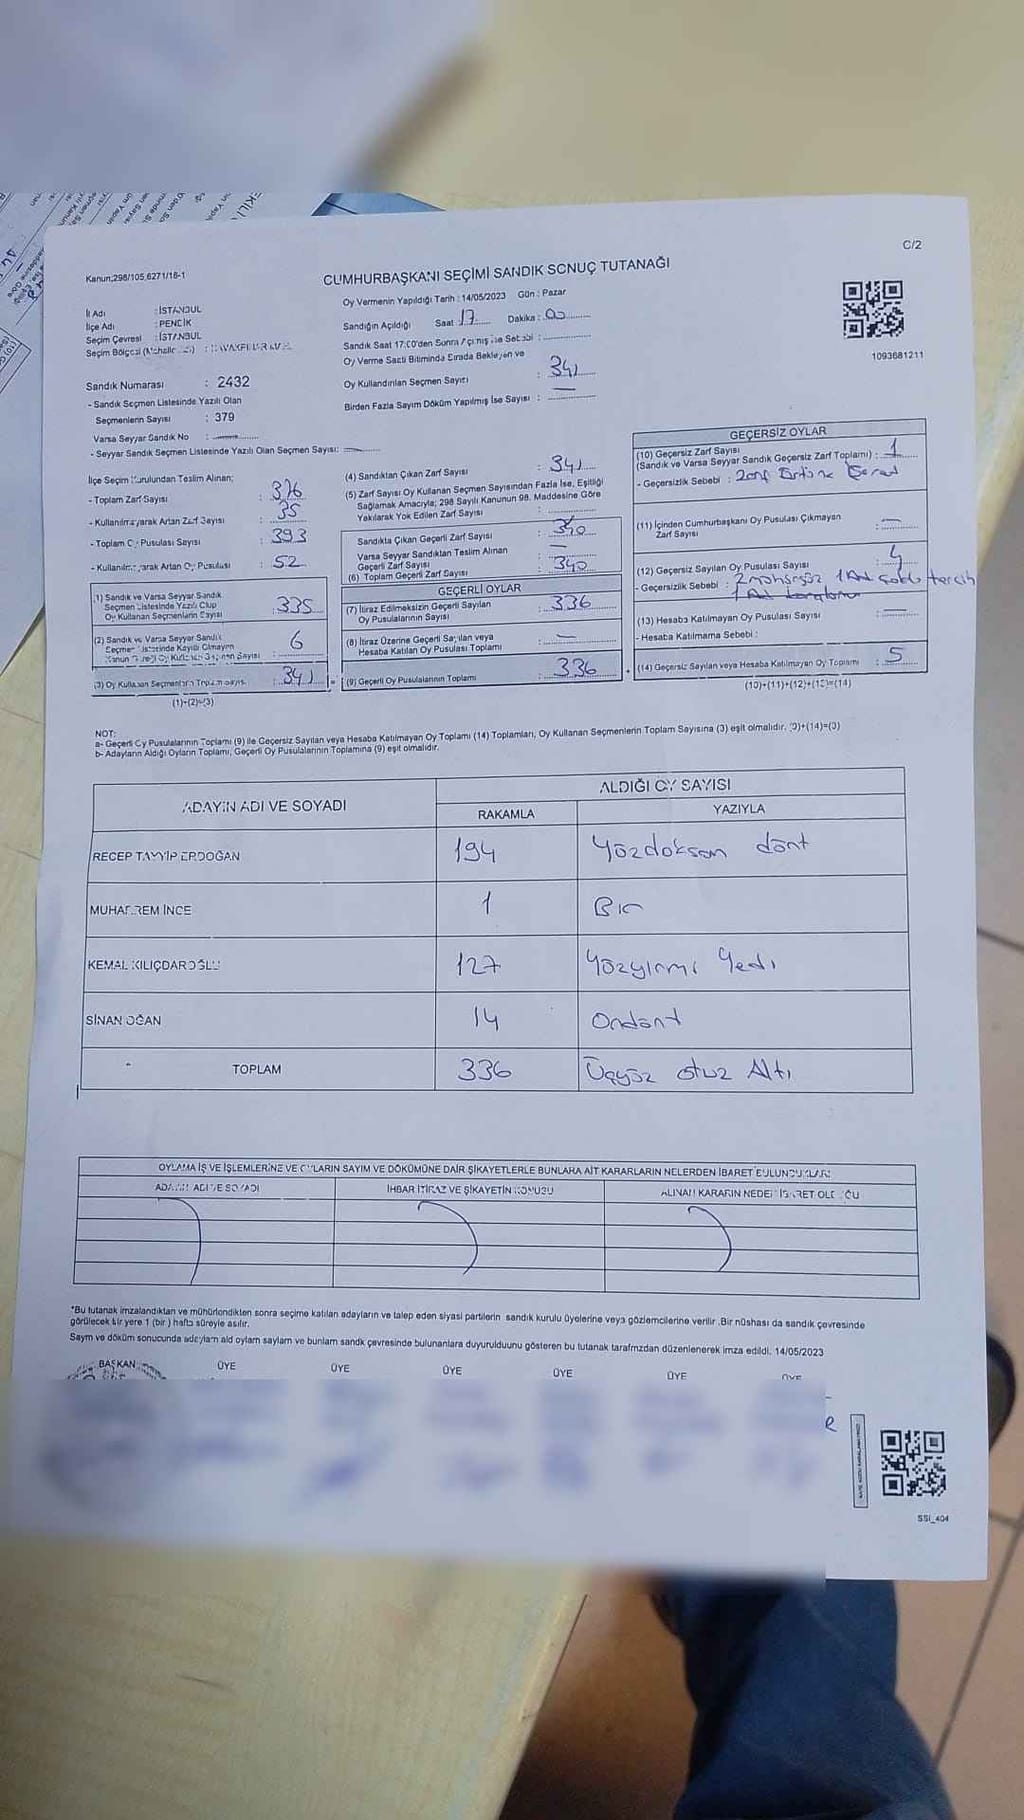 C/2
Kanun;298/105,6271/16-1
CUMHURBAŞKANI SEÇİMİ SANDIK SONUÇ TUTANAĞI
İl Adı : İSTANBUL
İlçe Adı : PENDİK
Seçim Çevresi : İSTANBUL
Seçim Bölgesi
Sandık Numarası : 2432
- Sandık Seçmen Listesinde Yazılı Olan
Seçmenlerin Sayısı : 379
Varsa Seyyar Sandık No :
- Seyyar Sandık Seçmen Listesinde Yazılı Olan Seçmen Sayısı:
Oy Vermenin Yapıldığı Tarih : 14/05/2023 Gün : Pazar
Sandığın Açıldığı Saat 17 Dakika : 00
Sandık Saat 17:00'den Sonra Açılmış ise Sebebi :
Oy Verme Saati Bitiminde Sırada Bekleyen ve
Oy Kullandırılan Seçmen Sayısı : 341
Birden Fazla Sayım Döküm Yapılmış İse Sayısı : —
1093681211
İlçe Seçim Kurulundan Teslim Alınan;
- Toplam Zarf Sayısı : 376
- Kullanılmayarak Artan Zarf Sayısı : 35
- Toplam Oy Pusulası Sayısı : 393
- Kullanılmayarak Artan Oy Pusulası : 52
(1) Sandık ve Varsa Seyyar Sandık
Seçmen Listesinde Yazılı Olup
Oy Kullanan Seçmenlerin Sayısı : 335
(2) Sandık ve Varsa Seyyar Sandık
Seçmen Listesinde Kayıtlı Olmayan
Kanun Gereği Oy Kullanan Seçmen Sayısı : 6
(3) Oy Kullanan Seçmenlerin Toplam Sayısı : 341
(1)+(2)=(3)
(4) Sandıktan Çıkan Zarf Sayısı : 341
(5) Zarf Sayısı Oy Kullanan Seçmen Sayısından Fazla İse, Eşitliği
Sağlamak Amacıyla; 298 Sayılı Kanunun 98. Maddesine Göre
Yakılarak Yok Edilen Zarf Sayısı :
Sandıkta Çıkan Geçerli Zarf Sayısı : 340
Varsa Seyyar Sandıktan Teslim Alınan
Geçerli Zarf Sayısı : —
(6) Toplam Geçerli Zarf Sayısı : 340
GEÇERLİ OYLAR
(7) İtiraz Edilmeksizin Geçerli Sayılan
Oy Pusulalarının Sayısı : 336
(8) İtiraz Üzerine Geçerli Sayılan veya
Hesaba Katılan Oy Pusulası Toplamı : —
(9) Geçerli Oy Pusulalarının Toplamı : 336
GEÇERSİZ OYLAR
(10) Geçersiz Zarf Sayısı
(Sandık ve Varsa Seyyar Sandık Geçersiz Zarf Toplamı) : 1
- Geçersizlik Sebebi :
(11) İçinden Cumhurbaşkanı Oy Pusulası Çıkmayan
Zarf Sayısı : —
(12) Geçersiz Sayılan Oy Pusulası Sayısı : 4
- Geçersizlik Sebebi : 2 mühürsüz 1 Ad tercih
(13) Hesaba Katılmayan Oy Pusulası Sayısı : —
- Hesaba Katılmama Sebebi :
(14) Geçersiz Sayılan veya Hesaba Katılmayan Oy Toplamı : 5
(10)+(11)+(12)+(13)=(14)
NOT:
a- Geçerli Oy Pusulalarının Toplamı (9) ile Geçersiz Sayılan veya Hesaba Katılmayan Oy Toplamı (14) Toplamları, Oy Kullanan Seçmenlerin Toplam Sayısına (3) eşit olmalıdır. (9)+(14)=(3)
b- Adayların Aldığı Oyların Toplamı, Geçerli Oy Pusulalarının Toplamına (9) eşit olmalıdır.
ADAYIN ADI VE SOYADI
ALDIĞI OY SAYISI
RAKAMLA YAZIYLA
RECEP TAYYİP ERDOĞAN 194 Yüzdoksan dört
MUHARREM İNCE 1 Bir
KEMAL KILIÇDAROĞLU 127 Yüzyirmi Yedi
SİNAN OĞAN 14 Ondört
TOPLAM 336 Üçyüz otuz Altı
OYLAMA İŞ VE İŞLEMLERİNE VE OYLARIN SAYIM VE DÖKÜMÜNE DAİR ŞİKAYETLERLE BUNLARA AİT KARARLARIN NELERDEN İBARET BULUNDUKLARI
ADININ ADI VE SOYADI İHBAR İTİRAZ VE ŞİKAYETİN KONUSU ALINAN KARARIN NEDEN İBARET OLDUĞU
*Bu tutanak imzalandıktan ve mühürlendikten sonra seçime katılan adayların ve talep eden siyasi partilerin sandık kurulu üyelerine veya gözlemcilerine verilir .Bir nüshası da sandık çevresinde
görülecek bir yere 1 (bir ) hafta süreyle asılır.
Sayım ve döküm sonucunda adayların ald oyların sayları ve bunların sandk çevresinde bulunanlara duyurulduunu gösteren bu tutanak tarafmzdan düzenlenerek imza edildi. 14/05/2023
BAŞKAN ÜYE ÜYE ÜYE ÜYE ÜYE ÜYE
SSİ_404